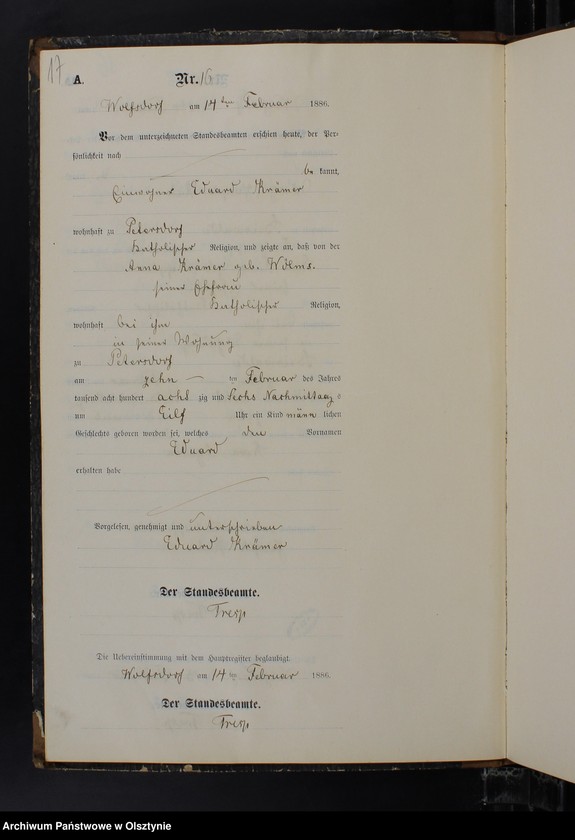 17
A. Nr. 16
Wolfsdorf am 14ten Februar 1886.
Vor dem unterzeichneten Standesbeamten erschien heute, der Per-
sönlichkeit nach
be kannt,
Einwohner Eduard Krämer
wohnhaft zu Petersdorf
katholischer Religion, und zeigte an, daß von der
Anna Krämer geb. Wölms.
seiner Ehefrau
katholischer Religion,
wohnhaft bei ihm
in seiner Wohnung
zu Petersdorf
am zehn ten Februar des Jahres
tausend acht hundert acht zig und sechs Nachmittag s
um Eilf Uhr ein Kind männ lichen
Geschlechts geboren worden sei, welches den Vornamen
Eduard
erhalten habe
Vorgelesen, genehmigt und unterschrieben
Eduard Krämer
Der Standesbeamte.
Tresp
Die Uebereinstimmung mit dem Hauptregister beglaubigt.
Wolfsdorf am 14ten Februar 1886.
Der Standesbeamte.
Tresp
Archiwum Państwowe w Olsztynie